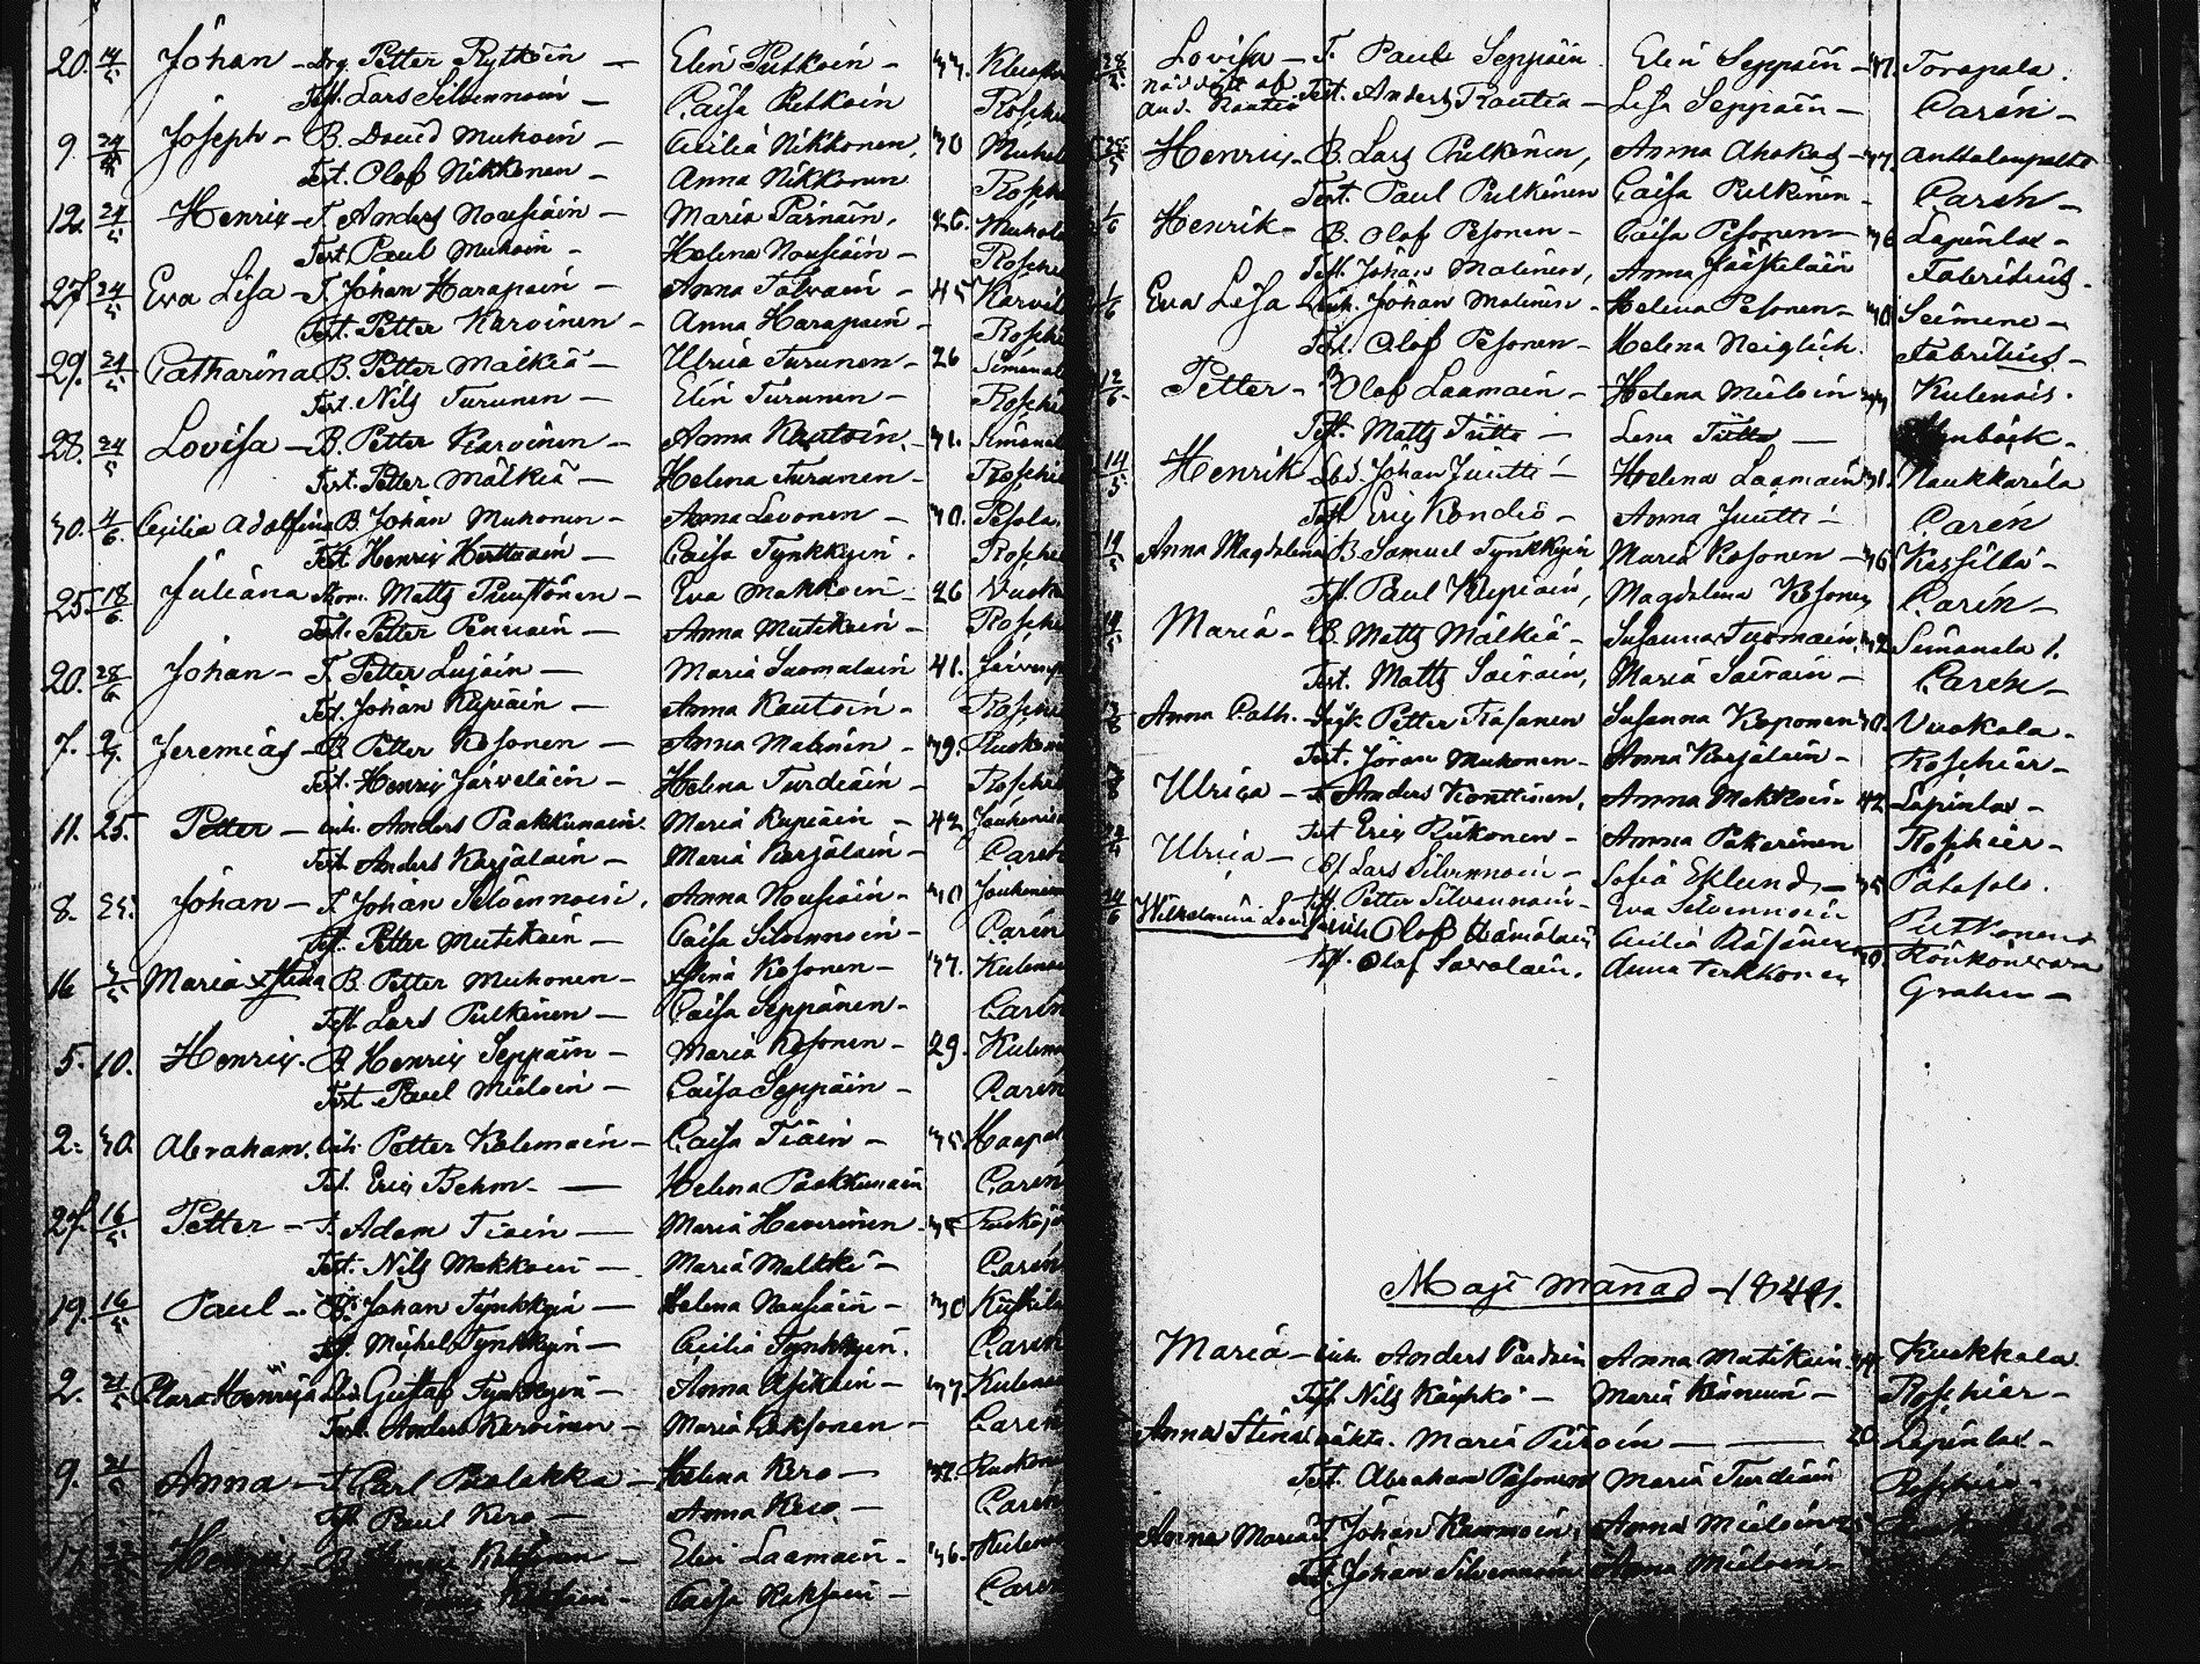 20. 14/5 Johan - Drg Petter Rytkoin - Elin Putkoin - 33.
Test. Lars Silvennoin - Caisa Putkoin Roschi
9. 24/5 Joseph - B. David Muhoin - Cecilia Nikkonen, 30 Muhol
Test. Olof Nikkonen - Anna Nikkonen Rosch
12. 24/5 Henrix - T. Anders Nousiain - Maria Parnain, 26. Muhola
Test. Paul Muhoin - Helena Nousiain - Rosche
27. 24/5 Eva Lisa - T. Johan Harapain - Anna Tolvain - 45 Karvil
Test. Petter Karvinen - Anna Harapain - Rosche
29. 24/5 Catharina B. Petter Malkiä - Ulrica Turunen - 26 Simanal
Test. Nils Turunen - Elin Turunen - Roschi
28. 24/5 Lovisa - B. Petter Karvinen - Anna Rautoin - 31. Simanal
Test. Petter Mälkiä - Helena Turunen - Roschie
30. 4/6. Cecilia Adolfina B. Johan Muhonen - Anna Levonen - 30. Pesola.
Test Henrix Herttuain - Caisa Tynkkyin. Roschi
25. 18/6. Juliana Matts Puustonen - Eva Makkoin - 26 Vuok
Test. Petter Penuain - Anna Mutikain - Rosche
20. 28/6 Johan - T. Petter Lujain - Maria Suomalain 41. Järven
Test. Johan Rupiain - Anna Rautoin - Roschi
7. Jeremias - B. Petter Kosonen - Anna Malinin - 39. Ruokon
Test. Henrix Järveläin - Helena Turdiäin - Roschi
11. 25. Petter - inh. Anders Paakkunain. Maria Rupiain - 42
Test Anders Karjalain - Maria Karjalain - Carén
8. 25. Johan - T. Johan Silvennoin. Anna Nousiain - 30
Test. Petter Mutikain - Caisa Silvennoin - Carén
16 Maria Stina B. Petter Muhonen - Stina Kosonen - 37. Kulen
Test Lars Pulkinen - Caisa Seppänen - Carén
5. 10. Henrix. B. Henrix Seppäin - Maria Kosonen - 29. Kulen
Test Paul Miéloin - Caisa Seppäin - Carén
2. 30. Abraham. inh. Petter Kolemain - Caisa Tiäin - 35. Haapal
Test. Eric Behm - Helena Paakkunain Carén
27. 16/5 Petter - T. Adam Tiäin - Maria Haverinen - 35
Test. Nils Makkoin - Maria Malkki - Carén
19. 16/5 Paul - B. Johan Tynkkyin - Helena Nousiain - 30
Test. Michel Tynkkyin - Cecilia Tynkkyin. Carén
2. 21/5 Clara Henrica Gustaf Tynkkyin - Anna Asikain - 37. Kulen
Test. Anders Karvinen - Maria Koksonen - Carén
9. 21/5 Anna - T Carl Puolakka - Helena Kero - 32. Ruokon
Test Paul Kero - Anna Kero. Carén
17. Elin Laamain - 36. Kulen
Caisa Carén
28/5. Lovisa - T. Paul Seppäin Elin Seppäin - 37. Torapala.
Nöddöpt af
And. Rautia Test. Anders Rautia - Lisa Seppäin - Carén -
Henrix - B. Lars Pulkinen, Anna Ahokas - 37. Anttalanpalto
Test. Paul Pulkinen Caisa Pulkinen - Carén -
1/6 Henrik - B. Olof Pesonen - Caisa Pesonen - 36 Lapinlax -
Test. Johan Malinen, Anna Jääskeläin Fabritius -
1/6 Eva Lisa - inh. Johan Malinin - Helena Pesonen - 30 Seimene -
Test. Olof Pesonen - Helena Neiglich. Fabritius -
12/6. Petter - B Olof Laamain - Helena Miéloin 33 Kulenois.
Test. Matts Tiitta - Lena Tiitta - Alenbäck -
14/5. Henrik Johan Juutti - Helena Laamain 31. Naukkarila
Test Eric Kondio - Anna Juutti - Carén
19/5 Anna Magdalena B. Samuel Tynkkyin Maria Kosonen - 36 Kassilla -
Test. Paul Rupiain, Magdalena Kosonen Carén -
19/5 Maria - B. Matts Mälkiä - Susanna Tuomain. 32 Simanala 1.
Test. Matts Sairain, Maria Sairain - Carén -
Anna Cath. - Petter Räsänen Susanna Koponen 30. Vuokala -
Test. Jöran Muhonen - Anna Karjalain - Roschier -
Ulrica - T Anders Konttinen, Anna Makkoin 42 Lapinlax -
Test Eric Riikonen - Anna Pakarinen Roschier -
Ulrica - Lars Silvennoin - Sofia Eklund - 35 Pätäsalo.
Test. Petter Silvennoin - Eva Silvennoin Putkonen
24/6 Wilhelmina Lovisa inh Olof Hämäläin Cecilia Räsänen 30. Rönkönvara
Test. Olof Savolain. Anna Terkkonen Grahn -
Maji månad - 1841.
Maria - inh. Anders Pardain Anna Matikain 34. Kuokkala.
Test Nils Käyhkö - Maria Kinnunin - Roschier -
Anna Stina Maria Piiroin - 20. Lapinlax -
Test. Abraham Pesonen Maria Turdiain Roschier -
Anna Maria T Johan Rummoin, Anna Miéloin
Test. Johan Silvennoin Anna Miéloin -